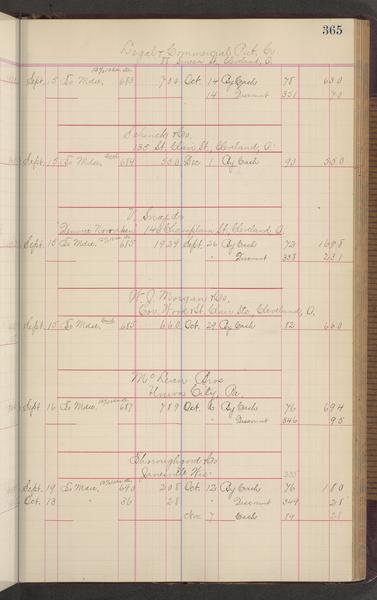 365
Legal & Commercial Pub. Co.
Seneca St., Cleveland, O.
Sept. 15 To Mdse. 683 7 00 Oct. 14 By Cash 78 6 30
14 " Discount 351 70
Schenck & Co.
135 St. Clair St., Cleveland, O.
Sept. 15 To Mdse. Cash 684 5 50 Dec 1 By Cash 90 5 50
148 Champlain St. Cleveland O.
Sept. 15 To Mdse. 685 19 29 Sept. 26 By Cash 72 16 98
" Discount 338 2 31
W. J. Morgan & Co.
Cor. Wood & St. Clair Sts., Cleveland, O.
Sept. 15 To Mdse. Cash 685 6 60 Oct. 29 By Cash 82 6 60
McLean Bros
Union City, Pa.
Sept. 16 To Mdse. 687 7 89 Oct. 6 By Cash 76 6 94
" Discount 346 95
Thoroughgood & Co
Janesville Wis.
Sept. 19 To Mdse. 690 2 08 Oct. 12 By Cash 76 1 80
Oct. 13 " 36 28 " Discount 349 28
Nov. 7 Cash 84 28